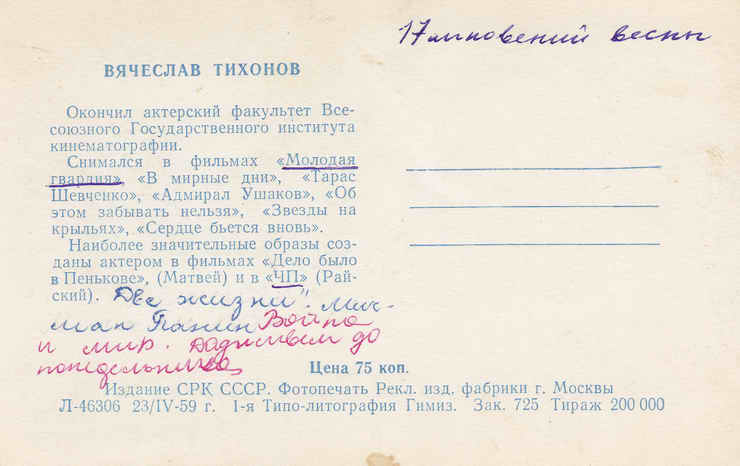 17 мгновений весны
ВЯЧЕСЛАВ ТИХОНОВ
Окончил актерский факультет Все-
союзного Государственного института
кинематографии.
Снимался в фильмах «Молодая
гвардия», «В мирные дни», «Тарас
Шевченко», «Адмирал Ушаков», «Об
этом забывать нельзя», «Звезды на
крыльях», «Сердце бьется вновь».
Наиболее значительные образы соз-
даны актером в фильмах «Дело было
в Пенькове», (Матвей) и в «ЧП» (Рай-
ский). Две жизни". Мич-
ман Панин Война
и мир. Доживем до
понедельника
Цена 75 коп.
Издание СРК СССР. Фотопечать Рекл. изд. фабрики г. Москвы
Л-46306 23/IV-59 г. 1-я Типо-литография Гимиз. Зак. 725 Тираж 200 000